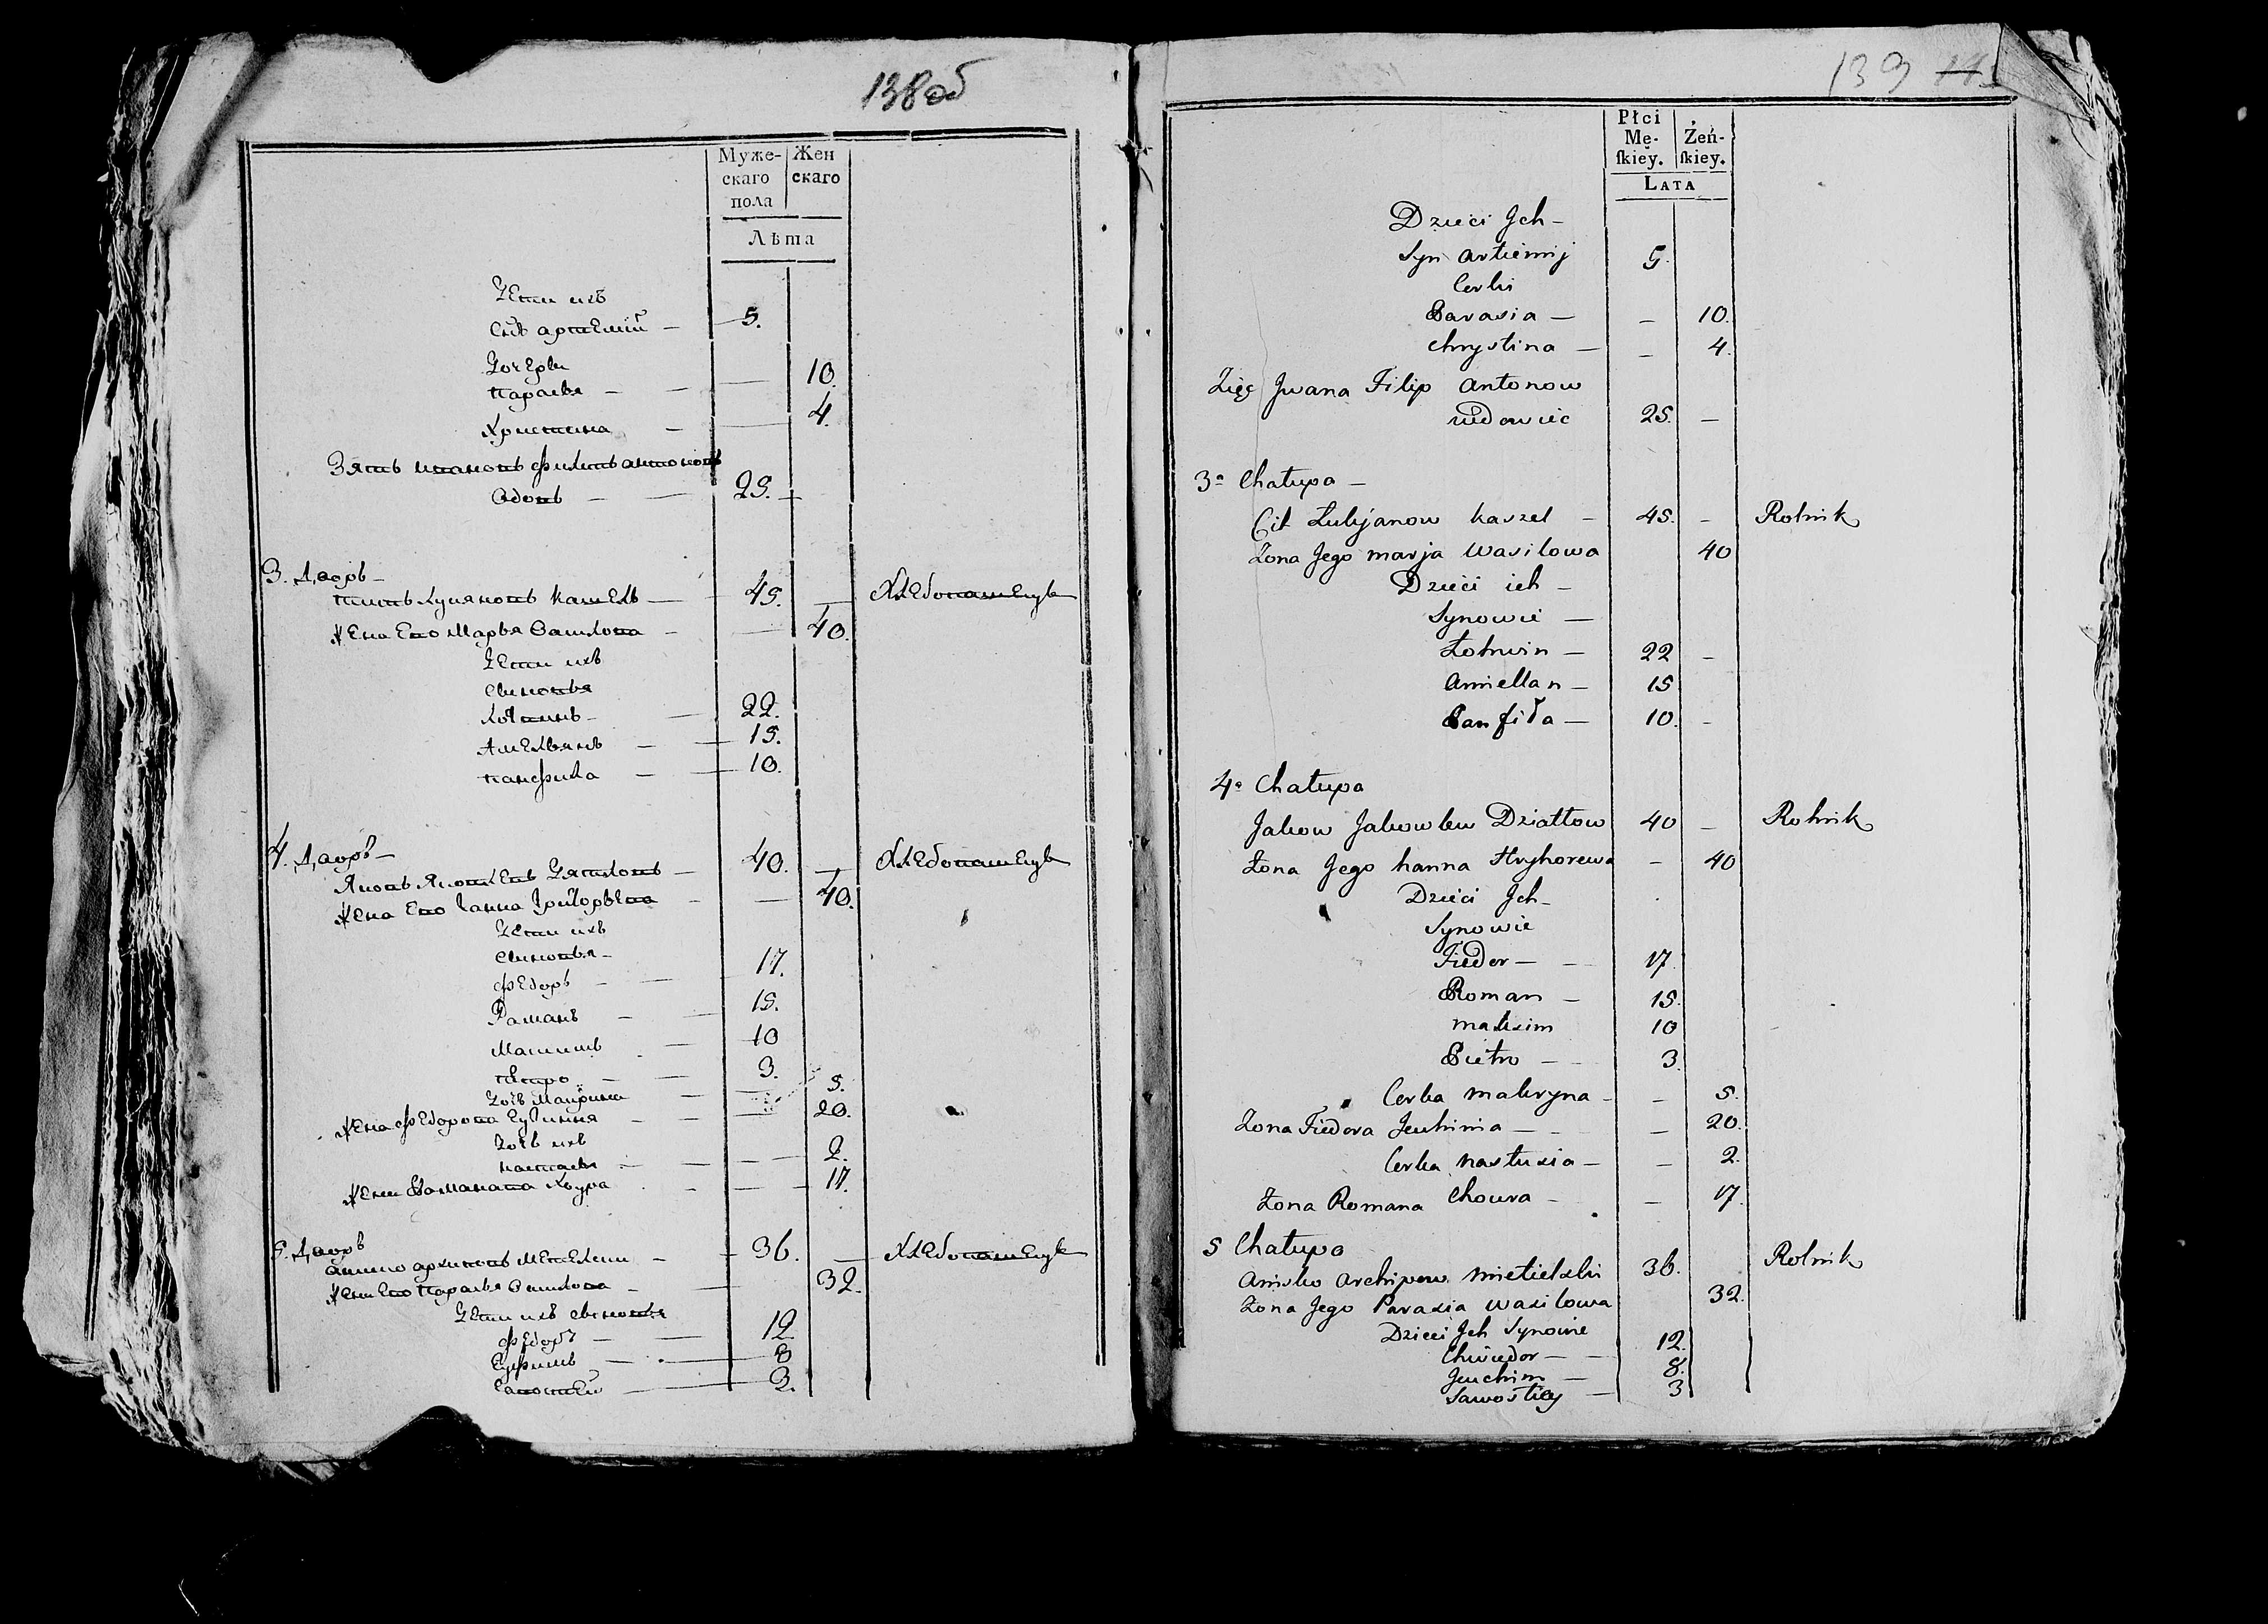 138об
Муже-
скаго
пола
Жен
скаго
Лѣта
Дети ихъ
Снъ артемій — 5.
Дочери
Парасья — 10.
Христина — 4.
Зять ивановъ филипъ антоновъ
вдовъ — 25. —
3. Дворъ —
титъ лукяновъ кашель — 45. — Хлебопашецъ
жена Ево Марья Василова — 40.
Дети ихъ
Сыновья
Лотвинъ — 22.
Амельянъ — 15.
панфила — 10.
4. Дворъ —
Яковъ Яковлевъ Дятловъ — 40. — Хлебопашецъ
жена Ево Ганна Григорьева — 40.
Дети ихъ
Сыновья —
федоръ — 17.
Раманъ — 15.
Максимъ — 10
петро — 3.
Дочь Макрина — 5.
жена федорова Еухимия — 20.
Дочь ихъ
настасья — 2.
жена Романова Хвура — 17.
5. Дворъ
аниско архиповъ Метелски — 36. — Хлебопашецъ
жена Ево Парасья Василова — 32.
Дети ихъ сыновья
федоръ — 12.
Еуфимъ — 8
Савостей — 3.
139
Płci
Mę-
ſkiey.
Żeń-
ſkiey.
LATA
Dzieci Jch —
Syn artiemij 5.
Cerki
Parasia — — 10.
Chrystina — — 4.
Zięc Jwana Filip antonow
wdowiec 25. —
3a Chałupa —
Cit Łukjanow kaszel — 45. — Rolnik
Żona Jego marja wasilowa 40
Dzieci ich —
Synowie —
Łotwin — 22 —
amiellan — 15
Panfiła — 10. —
4a Chałupa
Jakow Jakowlew Dziatłow 40 — Rolnik
Żona Jego hanna Hryhorewa — 40
Dzieci Jch —
Synowie
Fiedor — 17.
Roman — 15.
maksim 10
Pietro — 3.
Cerka makryna — — 5.
Żona Fiedora Jeuhimia — — 20.
Cerka nastusia — — 2.
Żona Romana Choura — — 17.
5 Chałupa
anisko archipow mietielski 36. Rolnik
Żona Jego Parasia wasilowa 32.
Dzieci Jch Synowie
Chwiedor — 12.
Jeuchim — 8.
Sawostiey — 3